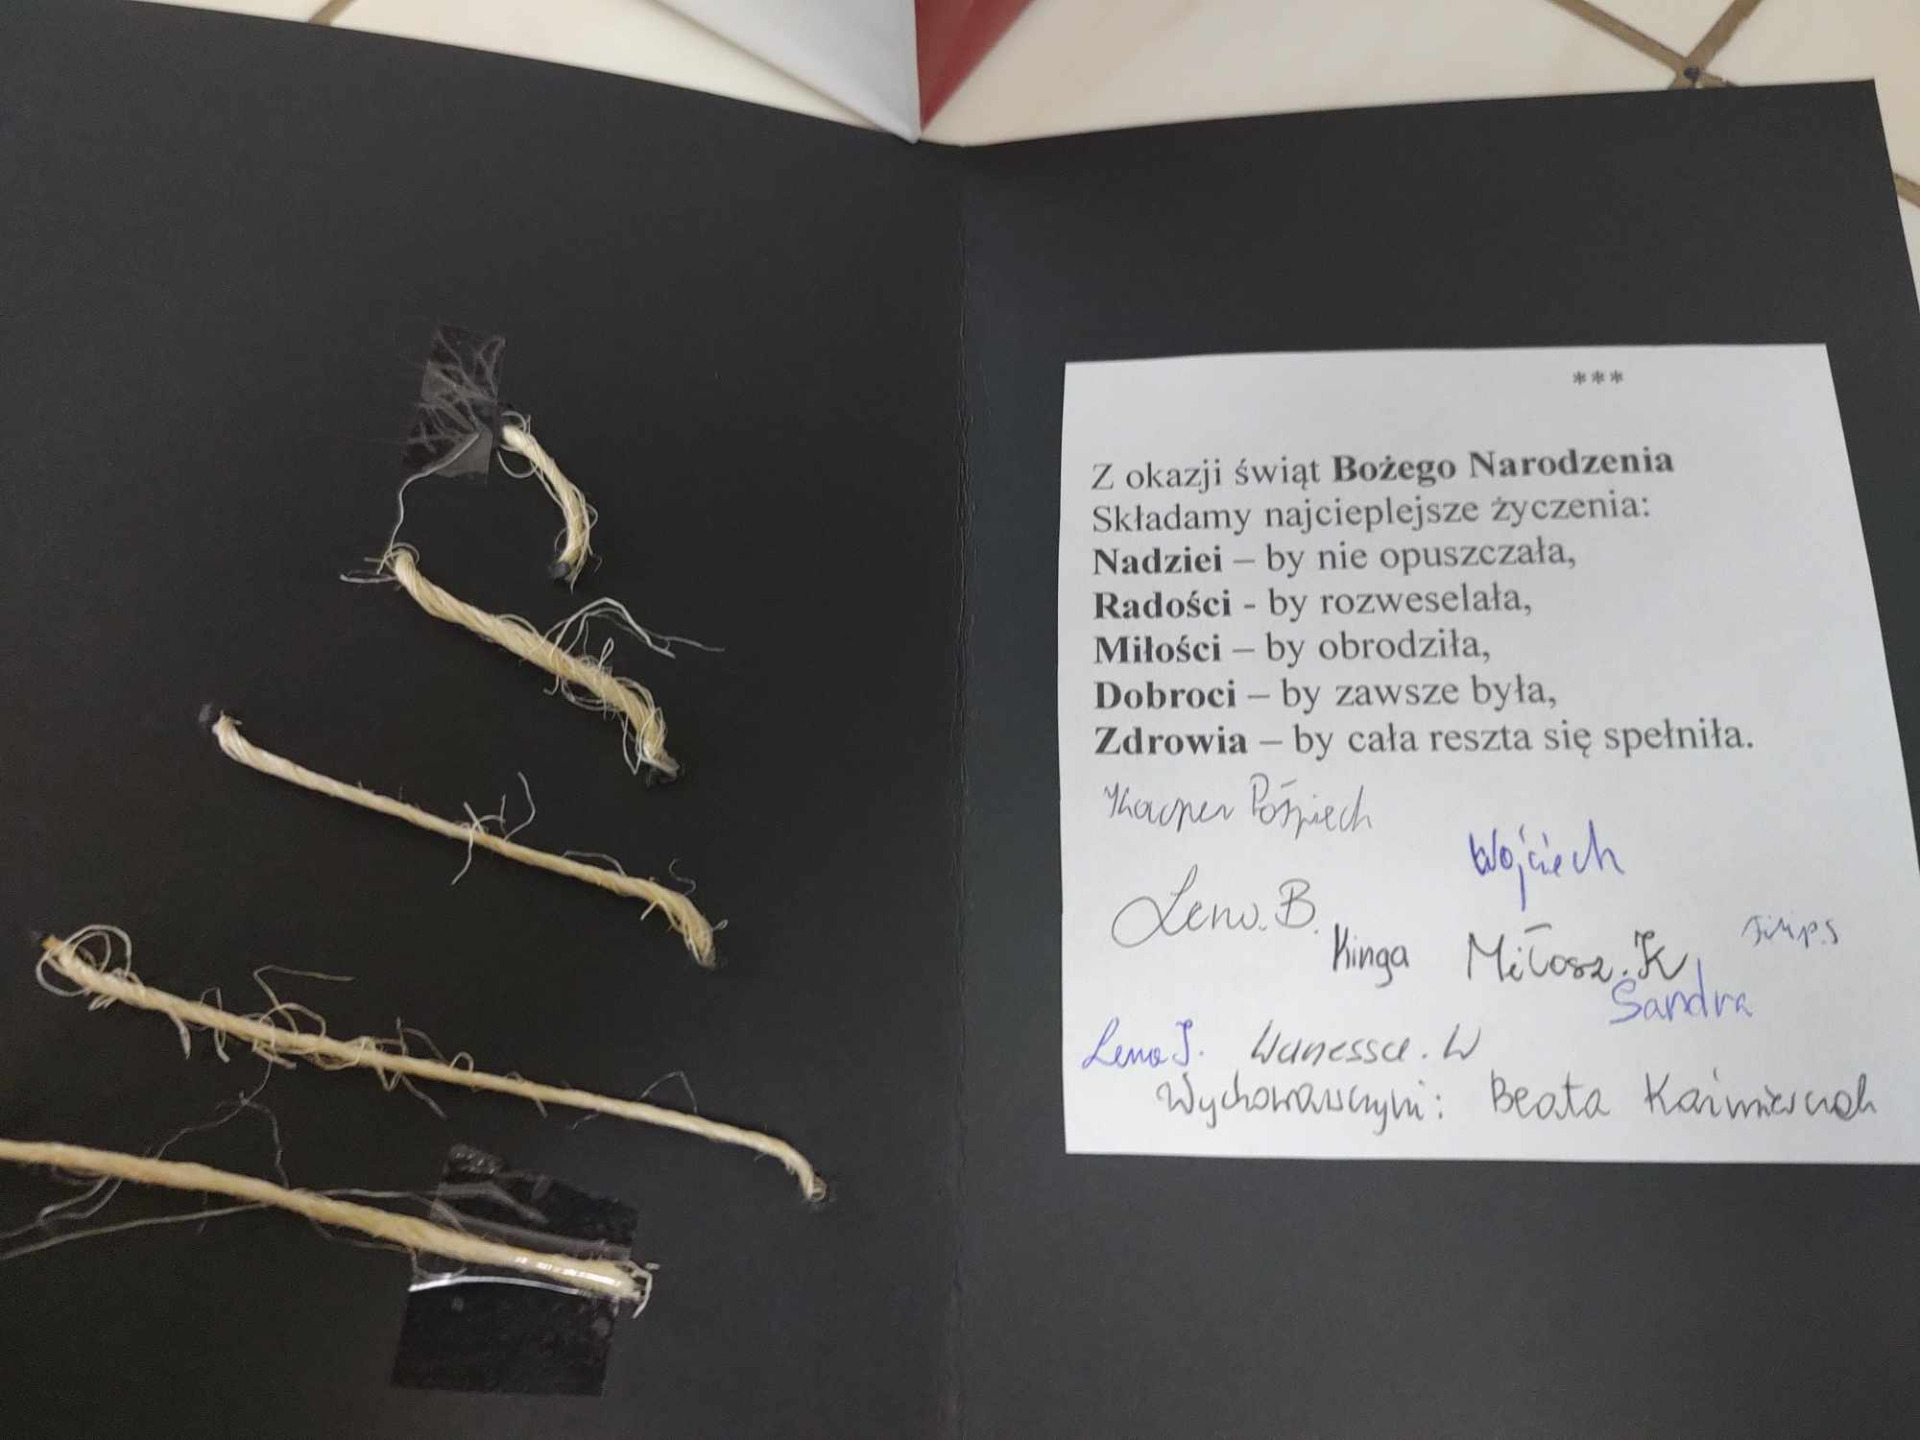 ***
Z okazji świąt Bożego Narodzenia
Składamy najcieplejsze życzenia:
Nadziei – by nie opuszczała,
Radości - by rozweselała,
Miłości – by obrodziła,
Dobroci – by zawsze była,
Zdrowia – by cała reszta się spełniła.
Kacper Pośpiech
Wojciech
Lena.B.
Kinga Miłosz.K Filip.S
Sandra
Lena J. Wanessa.W
Wychowawczyni: Beata Kaźmierczak